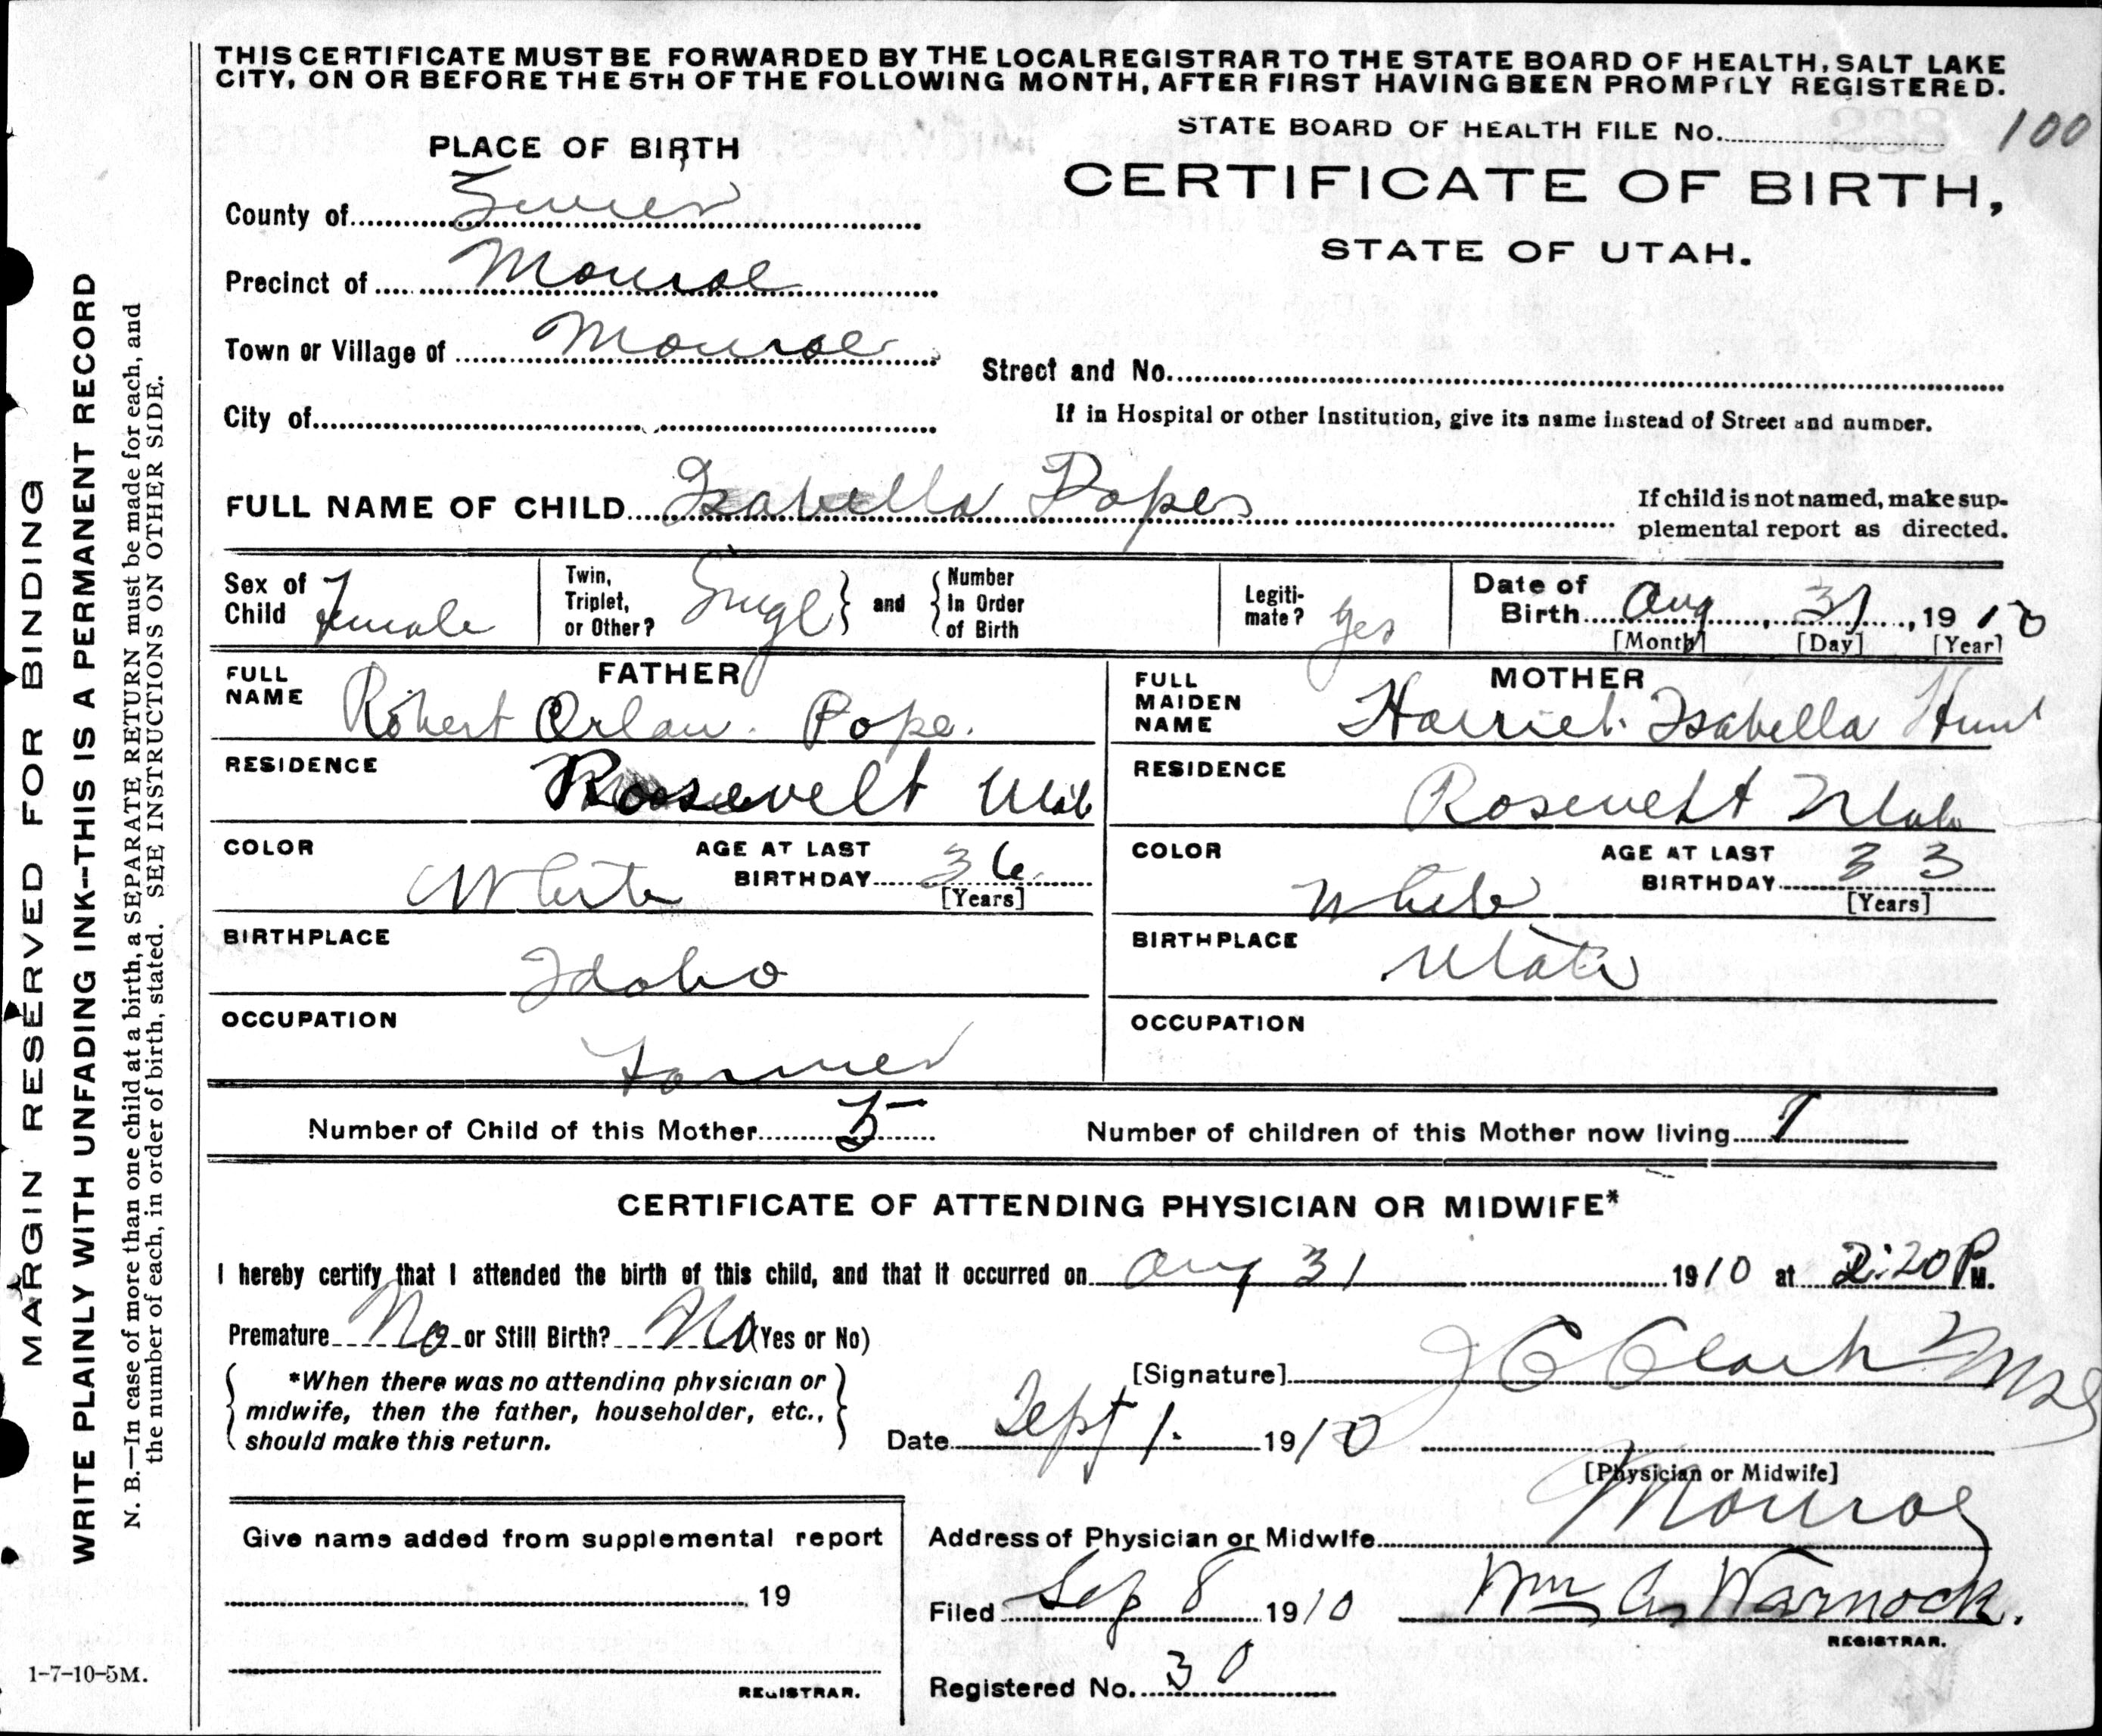 THIS CERTIFICATE MUST BE FORWARDED BY THE LOCAL REGISTRAR TO THE STATE BOARD OF HEALTH, SALT LAKE
CITY, ON OR BEFORE THE 5TH OF THE FOLLOWING MONTH, AFTER FIRST HAVING BEEN PROMPTLY REGISTERED.
STATE BOARD OF HEALTH FILE No. 100
PLACE OF BIRTH
CERTIFICATE OF BIRTH,
STATE OF UTAH.
County of Sevier
Precinct of Monroe
Town or Village of Monroe
Street and No.
City of
If in Hospital or other Institution, give its name instead of Street and number.
FULL NAME OF CHILD Isabella Popes
If child is not named, make sup-
plemental report as directed.
Sex of Child Female
Twin, Triplet, or Other? Singl and Number In Order of Birth
Legiti-mate? yes
Date of Birth Aug 31, 1910
[Month] [Day] [Year]
FATHER
FULL NAME Robert Orlaw. Pope.
RESIDENCE Roosevelt Utah
COLOR White AGE AT LAST BIRTHDAY 36 [Years]
BIRTHPLACE Idaho
OCCUPATION Farmer
MOTHER
FULL MAIDEN NAME Harriet Isabella Hunt
RESIDENCE Rosevelt Utah
COLOR White AGE AT LAST BIRTHDAY 33 [Years]
BIRTHPLACE Utah
OCCUPATION
Number of Child of this Mother 5 Number of children of this Mother now living
CERTIFICATE OF ATTENDING PHYSICIAN OR MIDWIFE*
I hereby certify that I attended the birth of this child, and that it occurred on Aug 31 1910 at 2:20 P M.
Premature No or Still Birth? No (Yes or No)
*When there was no attending physician or
midwife, then the father, householder, etc.,
should make this return.
[Signature] J C Clark
Date Sept 1. 1910
[Physician or Midwife]
Address of Physician or Midwife Monroe
Give name added from supplemental report
19
REGISTRAR.
Filed Sep 8 1910 Wm A. Warnock.
REGISTRAR.
Registered No. 30
MARGIN RESERVED FOR BINDING
WRITE PLAINLY WITH UNFADING INK--THIS IS A PERMANENT RECORD
N. B.—In case of more than one child at a birth, a SEPARATE RETURN must be made for each, and
the number of each, in order of birth, stated. SEE INSTRUCTIONS ON OTHER SIDE.
1-7-10-5M.